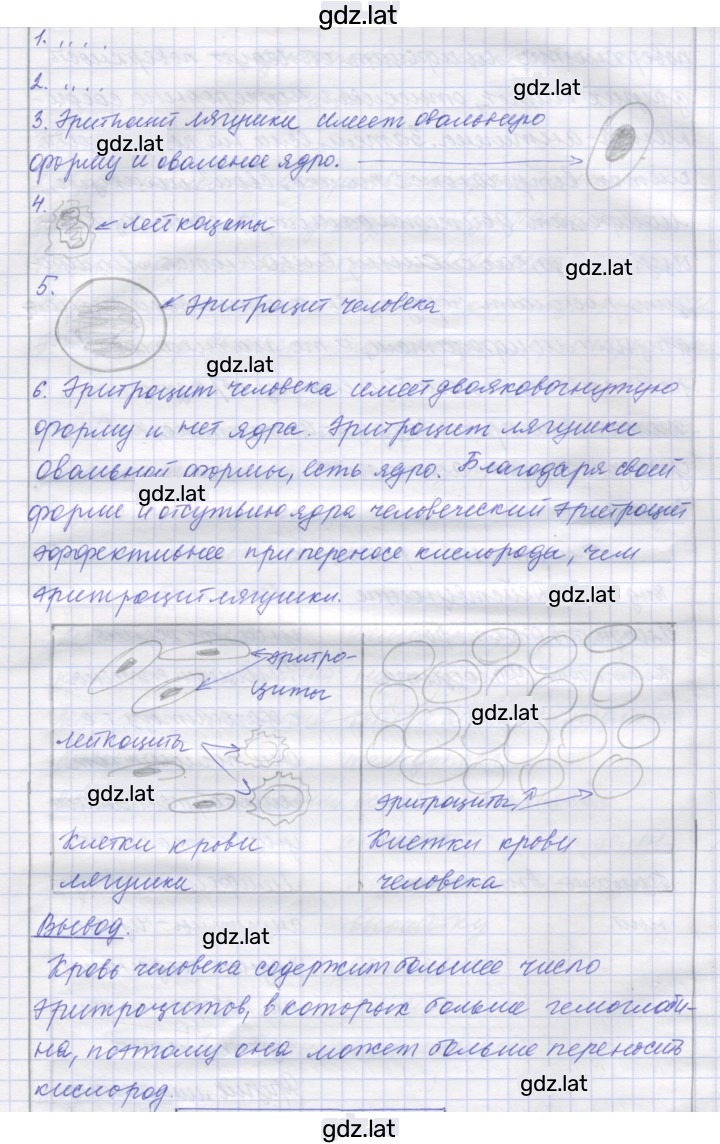 gdz.lat
1. ,, . .
2. ,, . .
gdz.lat
3. Эритроцит лягушки имеет овальную
gdz.lat
форму и овальное ядро.
4.
← лейкоциты
gdz.lat
5.
← Эритроцит человека
gdz.lat
6. Эритроцит человека имеет двояковогнутую
форму и нет ядра. Эритроцит лягушки
овальной формы, есть ядро. Благодаря своей
gdz.lat
форме и отсутвию ядра человеческий эритроцит
эффективнее при переносе кислорода, чем
gdz.lat
эритроцит лягушки.
эритро-
циты
gdz.lat
лейкоциты
gdz.lat
эритроциты
Клетки крови
лягушки
Клетки крови
человека
Вывод.
gdz.lat
Кровь человека содержит большее число
эритроцитов, в которых больше гемоглоби-
на, поэтому она может больше переносить
gdz.lat
кислород.
gdz.lat